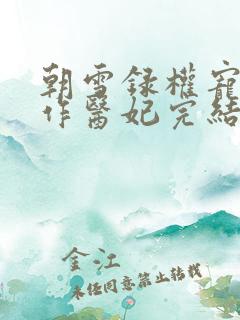 朝雪録權寵
作醫妃完結
金江
未经同意禁止转载